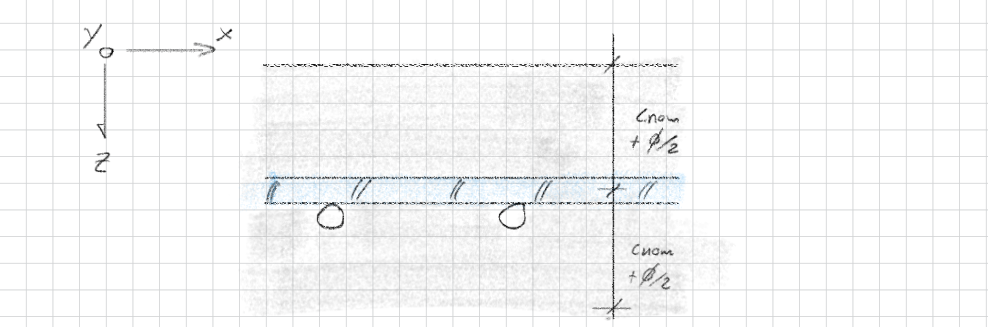 y
x
z
Cnom
+ ϕ/2
Cnom
+ ϕ/2